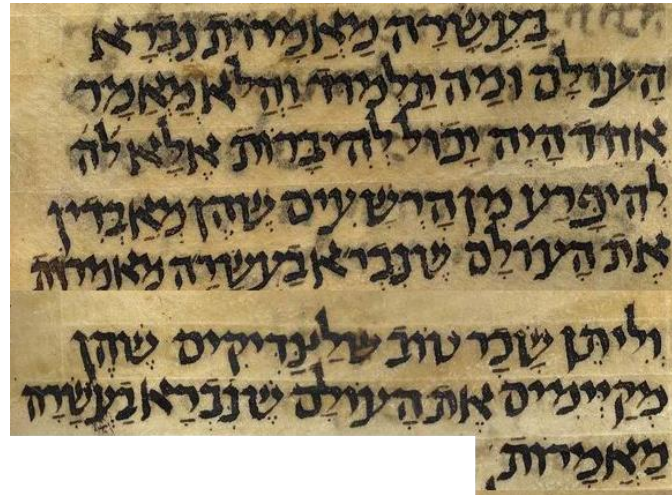 בַּעֲשָׂרָה מַאֲמָרוֹת נִבְרָא
הָעוֹלָם וּמַה תַּלְמוּד וַהֲלֹא מַאֲמָר
אֶחָד הָיָה יָכוֹל לְהִיבָּרוֹת אֶלָּא לה
לְהִיפָּרַע מִן הָרְשָׁעִים שֶׁהֵן מְאַבְּדִין
אֶת הָעוֹלָם שֶׁנִּבְרָא בַעֲשָׂרָה מַאֲמָרוֹת
וְלִיתֵּן שָׂכָר טוֹב שֶׁלַּצַּדִּיקִים שֶׁהֵן
מְקַיְּימִים אֶת הָעוֹלָם שֶׁנִּבְרָא בַעֲשָׂרָה
מַאֲמָרוֹת